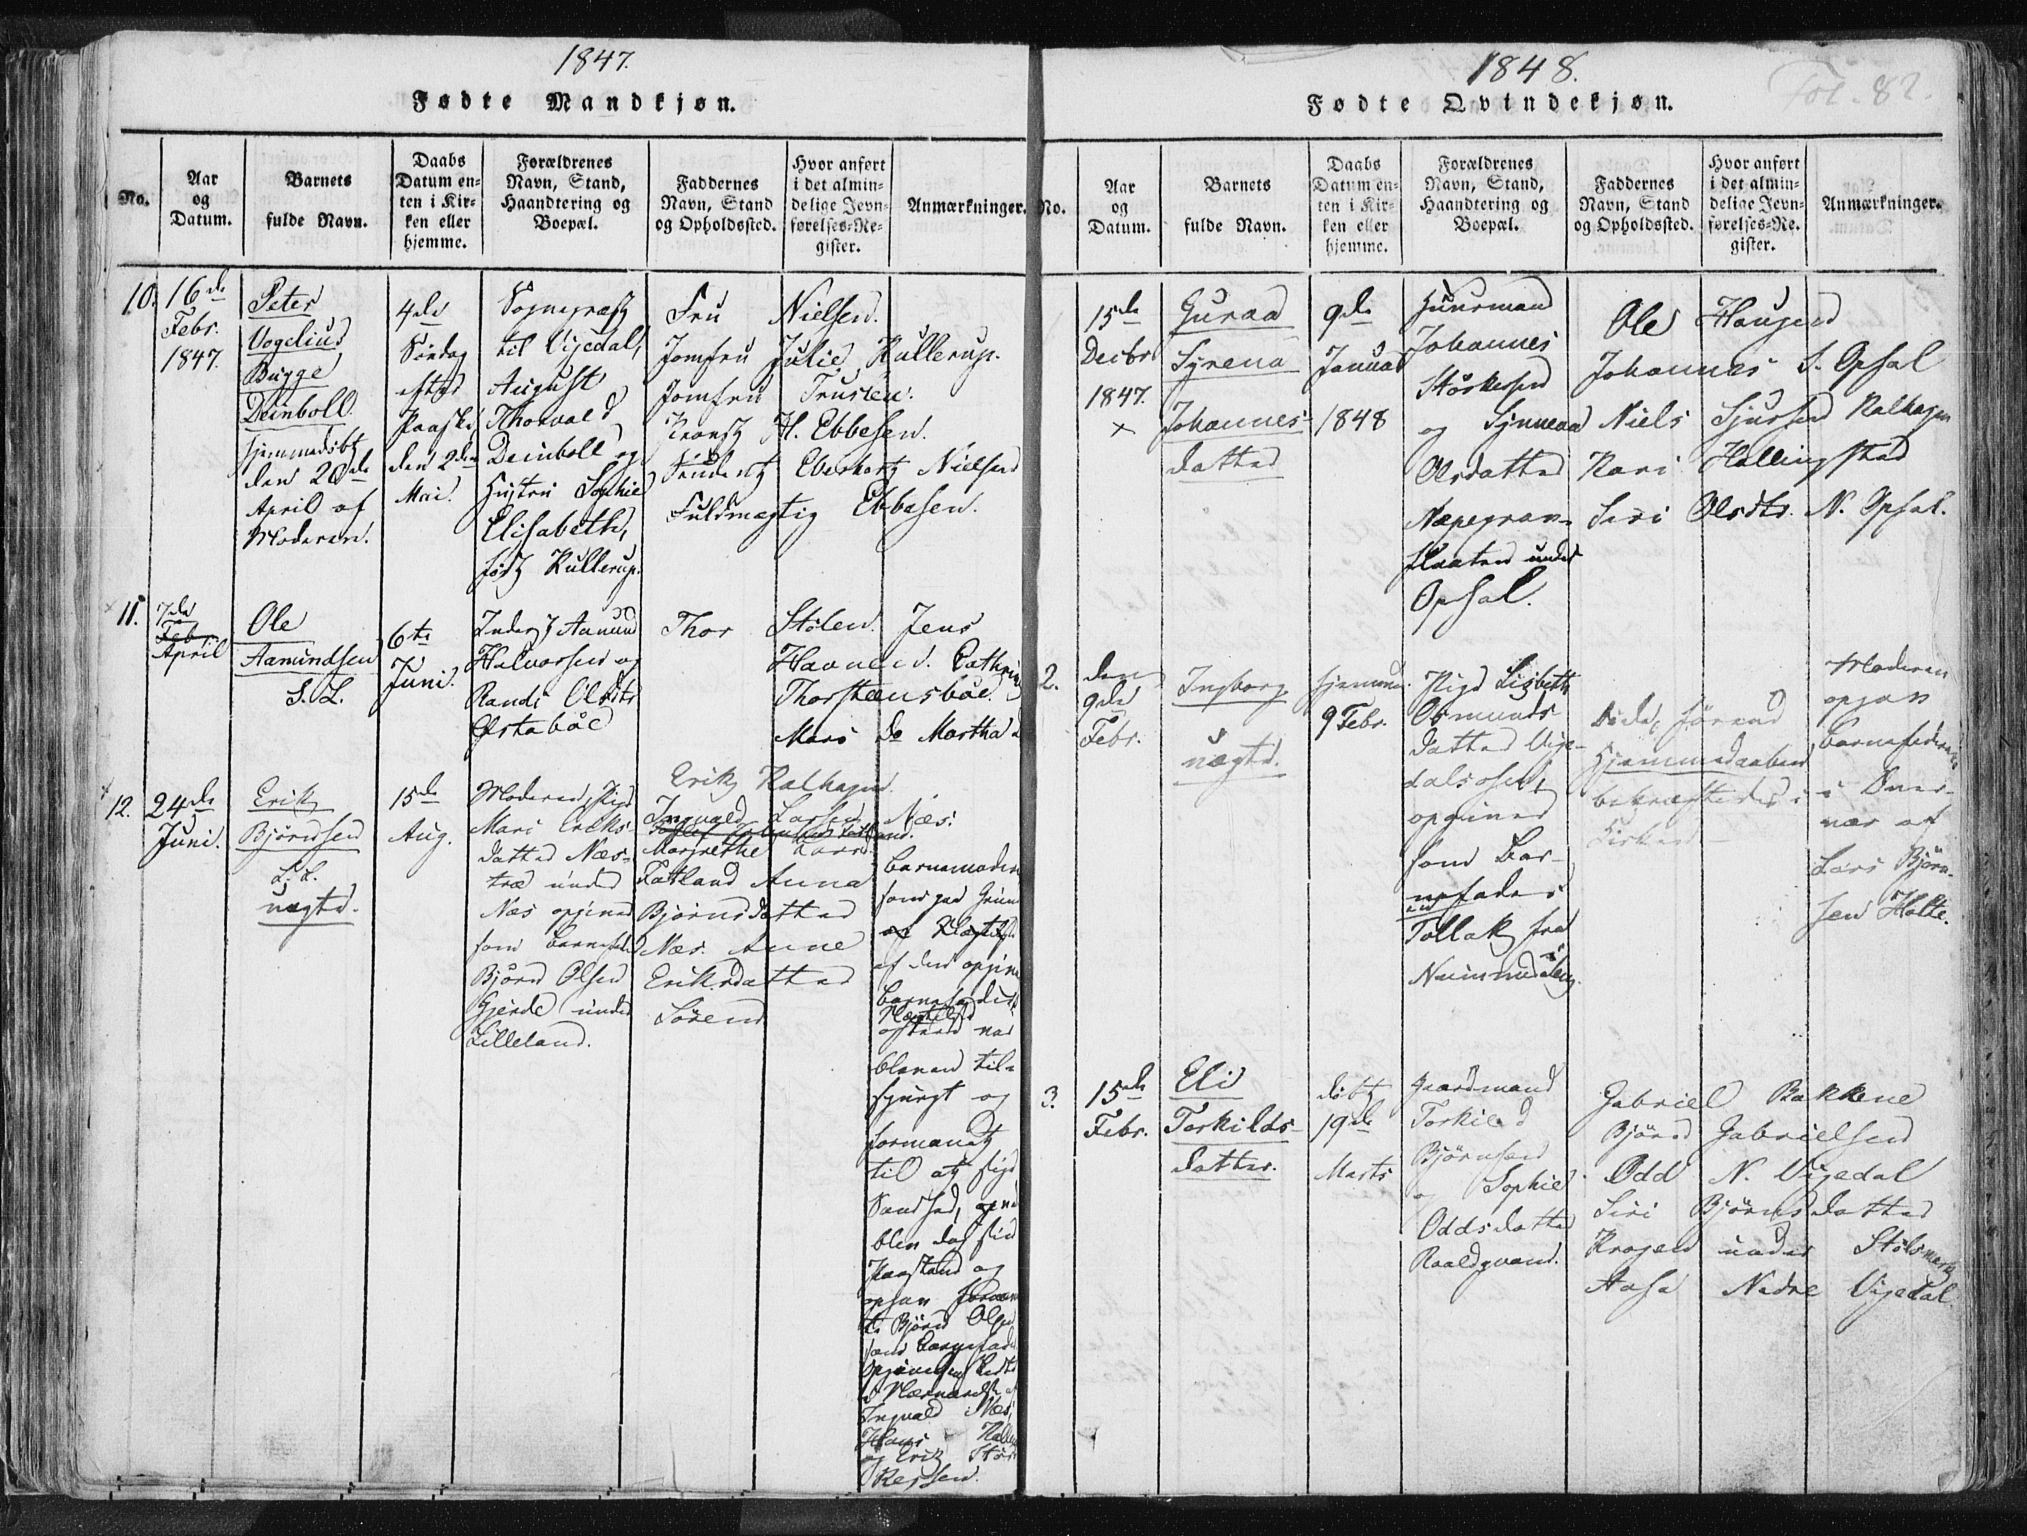 1847.
Fødte Mandkjøn.
No.
Aar
og
Datum.
Barnets
fulde Navn.
Daabs
Datum en-
ten i Kir-
ken eller
hjemme.
Forældrenes
Navn, Stand,
Haandtering og
Boepæl.
Faddernes
Navn, Stand
og Opholdssted.
Hvor anført
i det almin-
delige Jevn-
førelses-Re-
gister.
Anmærkninger.
10.
16de
Febr.
1847.
Peter
Vogelius
Bugge
Deinboll.
hjemmedøbt
den 20de
April af
Moderen.
4de
Søndag
efter
Paaske
den 2den
Mai.
Sognepræst
til Vigedal,
August
Thorvald
Deinboll og
Hustru Sophie
Elisabeth,
født Kullerup.
Fru Nielsen.
Jomfru Julie Kullerup.
Jomfru Trusten.
Provst H. Ebbesen.
Student Eberhort Nielsen
Fuldmægtig Ebbesen.
11.
7de
Febr.
April
Ole
Aamundsen
S. L.
6te
Juni.
Inderst Aamund
Halvorsen og
Randi Olsdtr
Ørstabøe
Thor Stølen. Jens
Havnen. Cathrine
Thorstensbøe.
Mari do Martha
12.
24de
Juni.
Erik
Bjørnsen
L. L.
uægte.
15de
Aug.
Moderen, Pige
Mari Eriks-
datter Næs-
træ under
Næs opgiver
som Barnefader
Bjørn Olsen
Gjerde under
Lilleland.
Erik Kalhagen.
Ingvald Larsen Næs.
Margrethe Larsd.
Fatland Anna
Bjørnsdatter
Næs. Anne
Eriksdatter
Søren
Barnemoderen
som
af den opgivne
Barnefader
bleven til-
spurgt og
formanet
til at sige
Sandhed,
blev dog ved
Paastand og
opgav
Bjørn Olsen
som Barnefader
Ingvald Næs,
Hans
og Erik Stør-
kersen.
1848.
Fol. 82.
Fødte Qvindekjøn.
No.
Aar
og
Datum.
Barnets
fulde Navn.
Daabs
Datum en-
ten i Kir-
ken eller
hjemme.
Forældrenes
Navn, Stand,
Haandtering og
Boepæl.
Faddernes
Navn, Stand
og Opholdssted.
Hvor anført
i det almin-
delige Jevn-
førelses-Re-
gister.
Anmærkninger.
15de
Decbr
1847.
×
Guraa
Syrena
Johannes-
datter
9de
Januar
1848
Huusmand
Johannes
Størkersen
og Synneva
Olsdatter
Næpegrav-
flaaten under
Opsal.
Ole Haugen
Johannes S. Opsal
Niels Sjursen Kalhagen
Kari Hellingstad
Siri Olsdtr. N. Opsal.
2.
den
9de
Febr.
Ingborg
uægte.
hjemme.
9 Febr.
Pige Lisbeth
Osmunds-
datter Vige-
dalsosen,
opgiver
som Bar-
nefader
Tollak fra
Døde, førend
Hjemmedaaben
bekræftedes i
Kirken
Moderen
opgav
Barnefaderen
i Over-
vær af
Lars Bjørn-
sen Holte.
3.
15de
Febr.
Eli
Torkilds-
datter.
døbt
19de
Marts
Gaardmand
Torkild
Bjørnsen
og Sophie
Oddsdatter
Roaldqvam.
Gabriel Bakkene
Bjørn Gabrielsen
Odd N. Vigedal
Siri Bjørnsdatter
Krogen under Stølsmark
Aasa Nedre Vigedal.